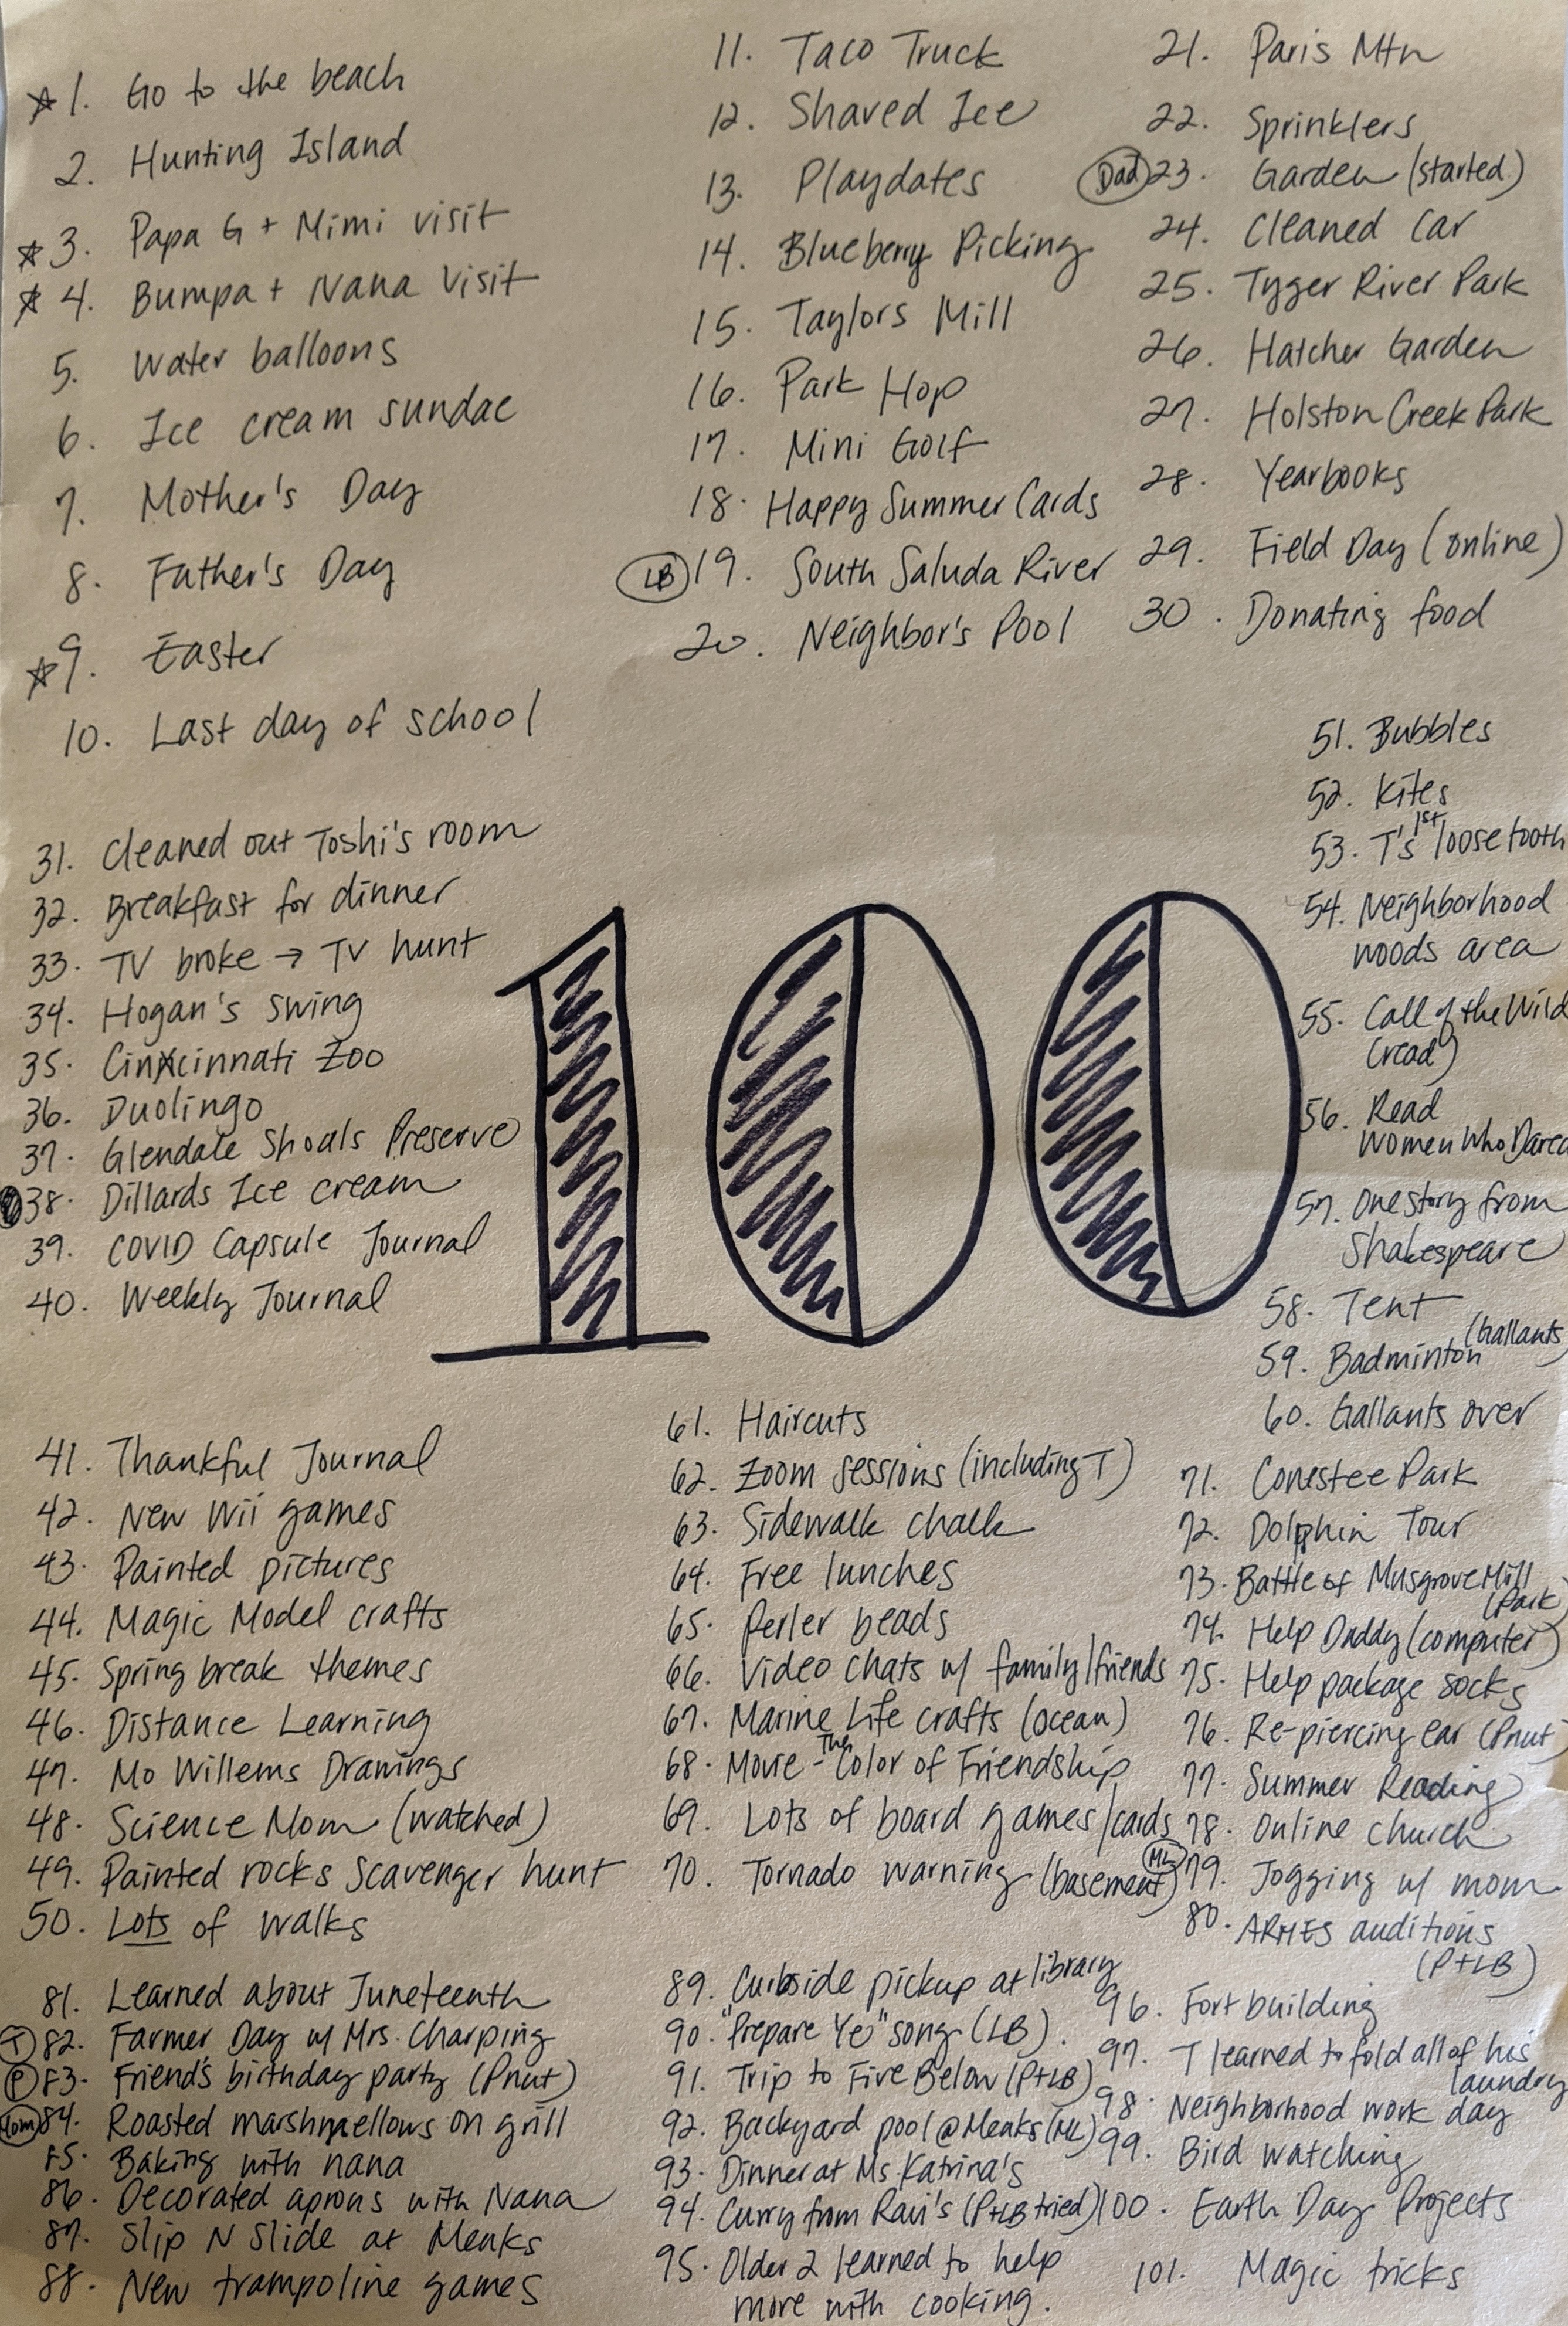 ☆ 1. Go to the beach
2. Hunting Island
☆ 3. Papa G + Mimi visit
☆ 4. Bumpa + Nana visit
5. Water balloons
6. Ice cream sundae
7. Mother's Day
8. Father's Day
☆ 9. Easter
10. Last day of school
11. Taco Truck
12. Shaved Ice
13. Playdates
14. Blueberry Picking
15. Taylors Mill
16. Park Hop
17. Mini Golf
18. Happy Summer Cards
LB 19. South Saluda River
20. Neighbor's Pool
21. Paris Mtn
22. Sprinklers
Dad 23. Garden (started)
24. Cleaned Car
25. Tyger River Park
26. Hatcher Garden
27. Holston Creek Park
28. Yearbooks
29. Field Day (online)
30. Donating food
31. Cleaned out Toshi's room
32. Breakfast for dinner
33. TV broke → TV hunt
34. Hogan's swing
35. Cincinnati Zoo
36. Duolingo
37. Glendale Shoals Preserve
38. Dillards Ice cream
39. COVID Capsule Journal
40. Weekly Journal
100
51. Bubbles
52. Kites
53. T's 1st loose tooth
54. Neighborhood
woods area
55. Call of the Wild
(read)
56. Read
Women Who Dared
57. One story from
Shakespeare
58. Tent
59. Badminton (Gallants)
60. Gallants over
41. Thankful Journal
42. New Wii games
43. Painted pictures
44. Magic Model crafts
45. Spring break themes
46. Distance Learning
47. Mo Willems Drawings
48. Science Mom (watched)
49. Painted rocks scavenger hunt
50. Lots of walks
61. Haircuts
62. Zoom sessions (including T)
63. Sidewalk chalk
64. Free lunches
65. Perler beads
66. Video chats w/ family/friends
67. Marine Life crafts (ocean)
68. Movie - The Color of Friendship
69. Lots of board games/cards
70. Tornado warning (basement)
71. Conestee Park
72. Dolphin Tour
73. Battle of Musgrove Mill
(Park)
74. Help Daddy (computer)
75. Help package socks
76. Re-piercing ear (Pnut)
77. Summer Reading
78. Online church
ML 79. Jogging w/ mom
80. ARMES auditions
(P+LB)
81. Learned about Juneteenth
T 82. Farmer Day w/ Mrs. Charping
P 83. Friend's birthday party (Pnut)
Mom 84. Roasted marshmellows on grill
85. Baking with nana
86. Decorated aprons with Nana
87. Slip N Slide at Menks
88. New trampoline games
89. Curbside pickup at library
90. "Prepare Ye" song (LB).
91. Trip to Five Below (P+LB)
92. Backyard pool @ Menks (ML)
93. Dinner at Ms. Katrina's
94. Curry from Ravi's (P+LB tried)
95. Older 2 learned to help
more with cooking.
96. Fort building
97. T learned to fold all of his
laundry
98. Neighborhood work day
99. Bird watching
100. Earth Day Projects
101. Magic tricks